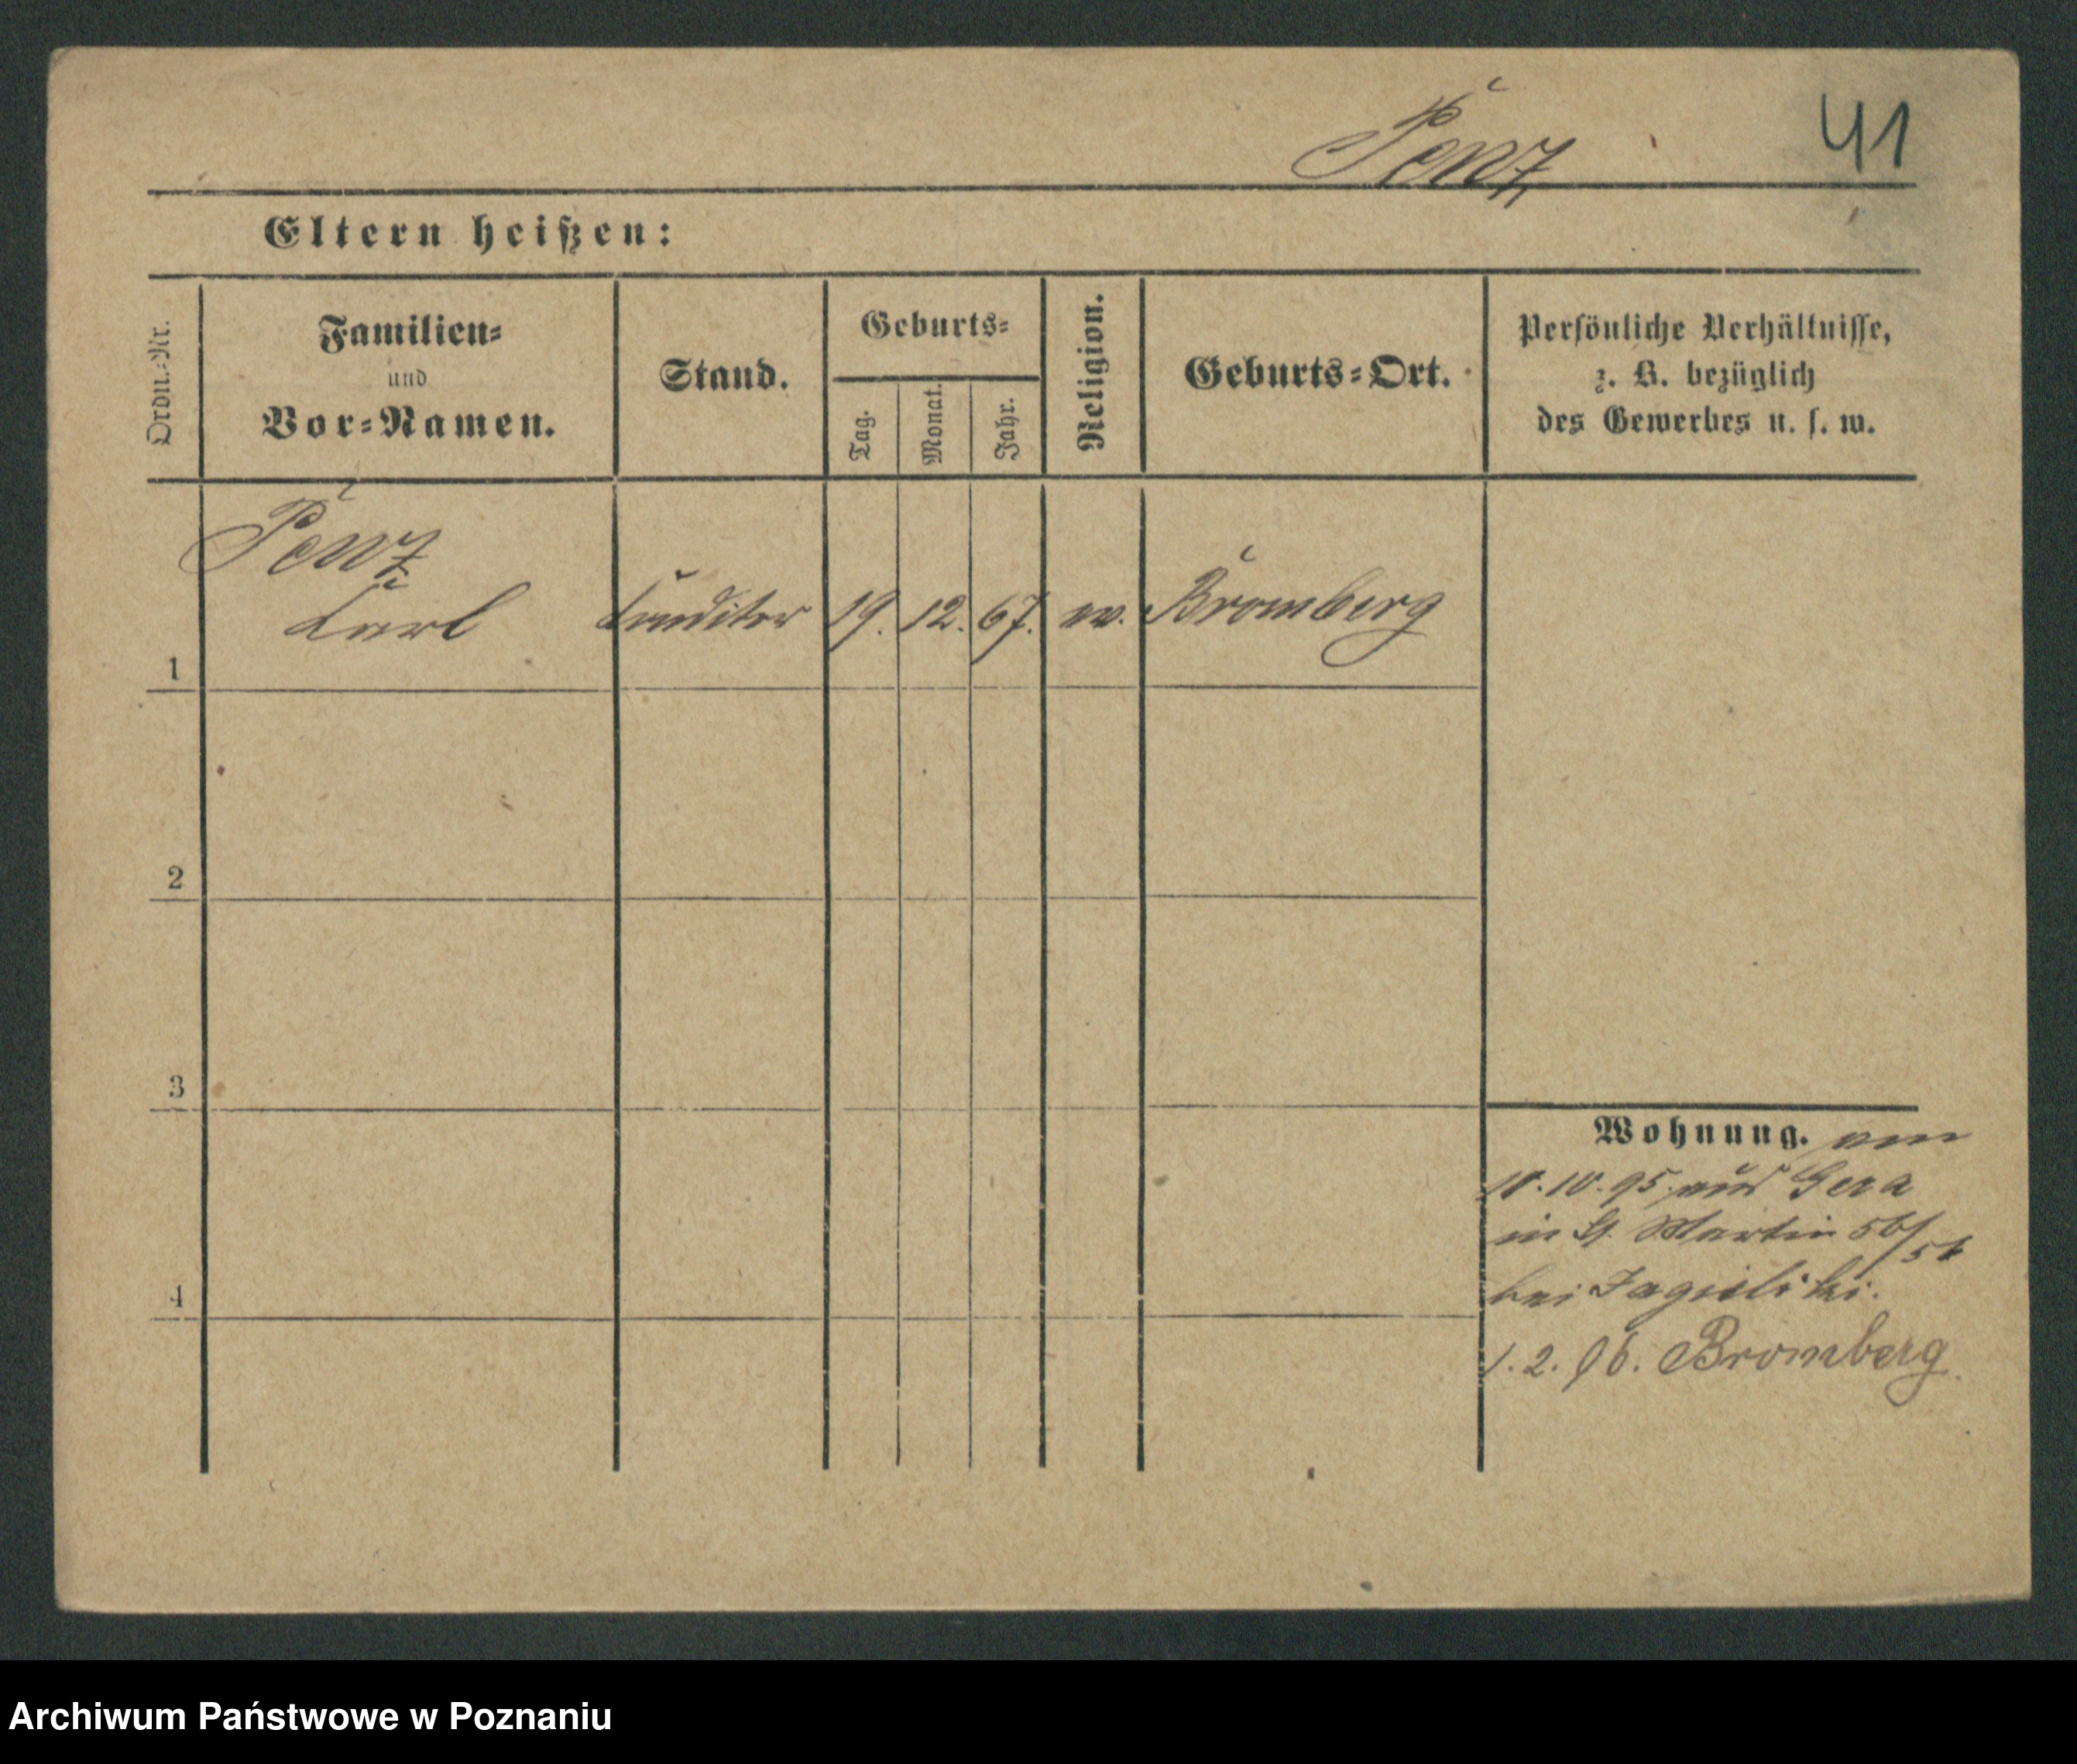 Penz
41
Eltern heißen:
Ordn.-Nr.
Familien-
und
Vor-Namen.
Stand.
Geburts-
Tag.
Monat.
Jahr.
Religion.
Geburts-Ort.
Persönliche Verhältnisse,
z. B. bezüglich
des Gewerbes u. s. w.
Penz
Carl
Conditor
19.
12.
67.
ev.
Bromberg
1
2
3
4
Wohnung. am
10.10.95 aus Gera
in St. Martin 56/
bei
1. 2. 96. Bromberg.
Archiwum Państwowe w Poznaniu